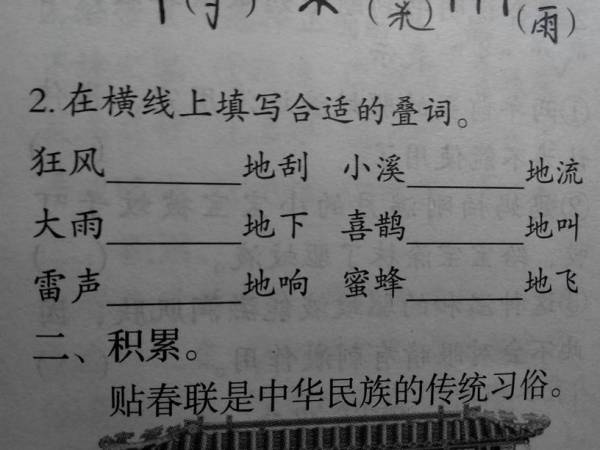 (于) (米) (雨)
2. 在横线上填写合适的叠词。
狂风______地刮 小溪______地流
大雨______地下 喜鹊______地叫
雷声______地响 蜜蜂______地飞
二、积累。
贴春联是中华民族的传统习俗。